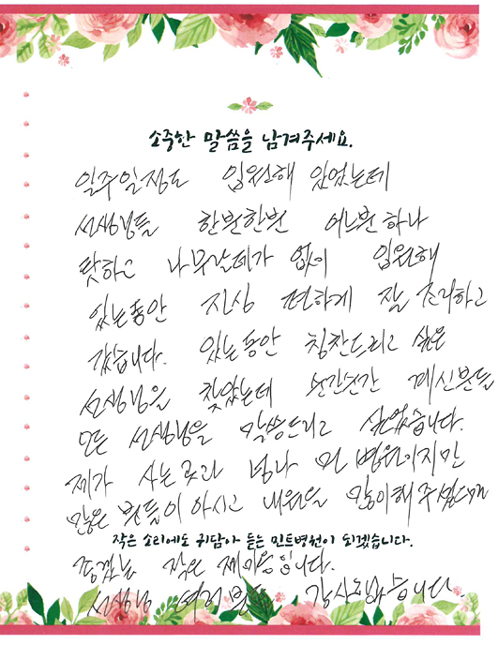 소중한 말씀을 남겨주세요.
일주일정도 입원해 있었는데
선생님들 한분한분 어느분 하나
랏하고 나무랄데가 없이 입원해
있는동안 진심 편하게 잘 조리하고
갔습니다. 있는동안 칭찬드리고 싶은
선생님을 찾았는데 순간순간 계신분들
모든 선생님을 말씀드리고 싶었습니다.
제가 사는곳과 넘나 먼 병원이지만
많은 분들이 아시고 내원을 많이해 주셨으면
작은 소리에도 귀담아 듣는 민트병원이 되겠습니다.
좋겠는 작은 제마음입니다.
선생님 여러분들 감사했습니다.